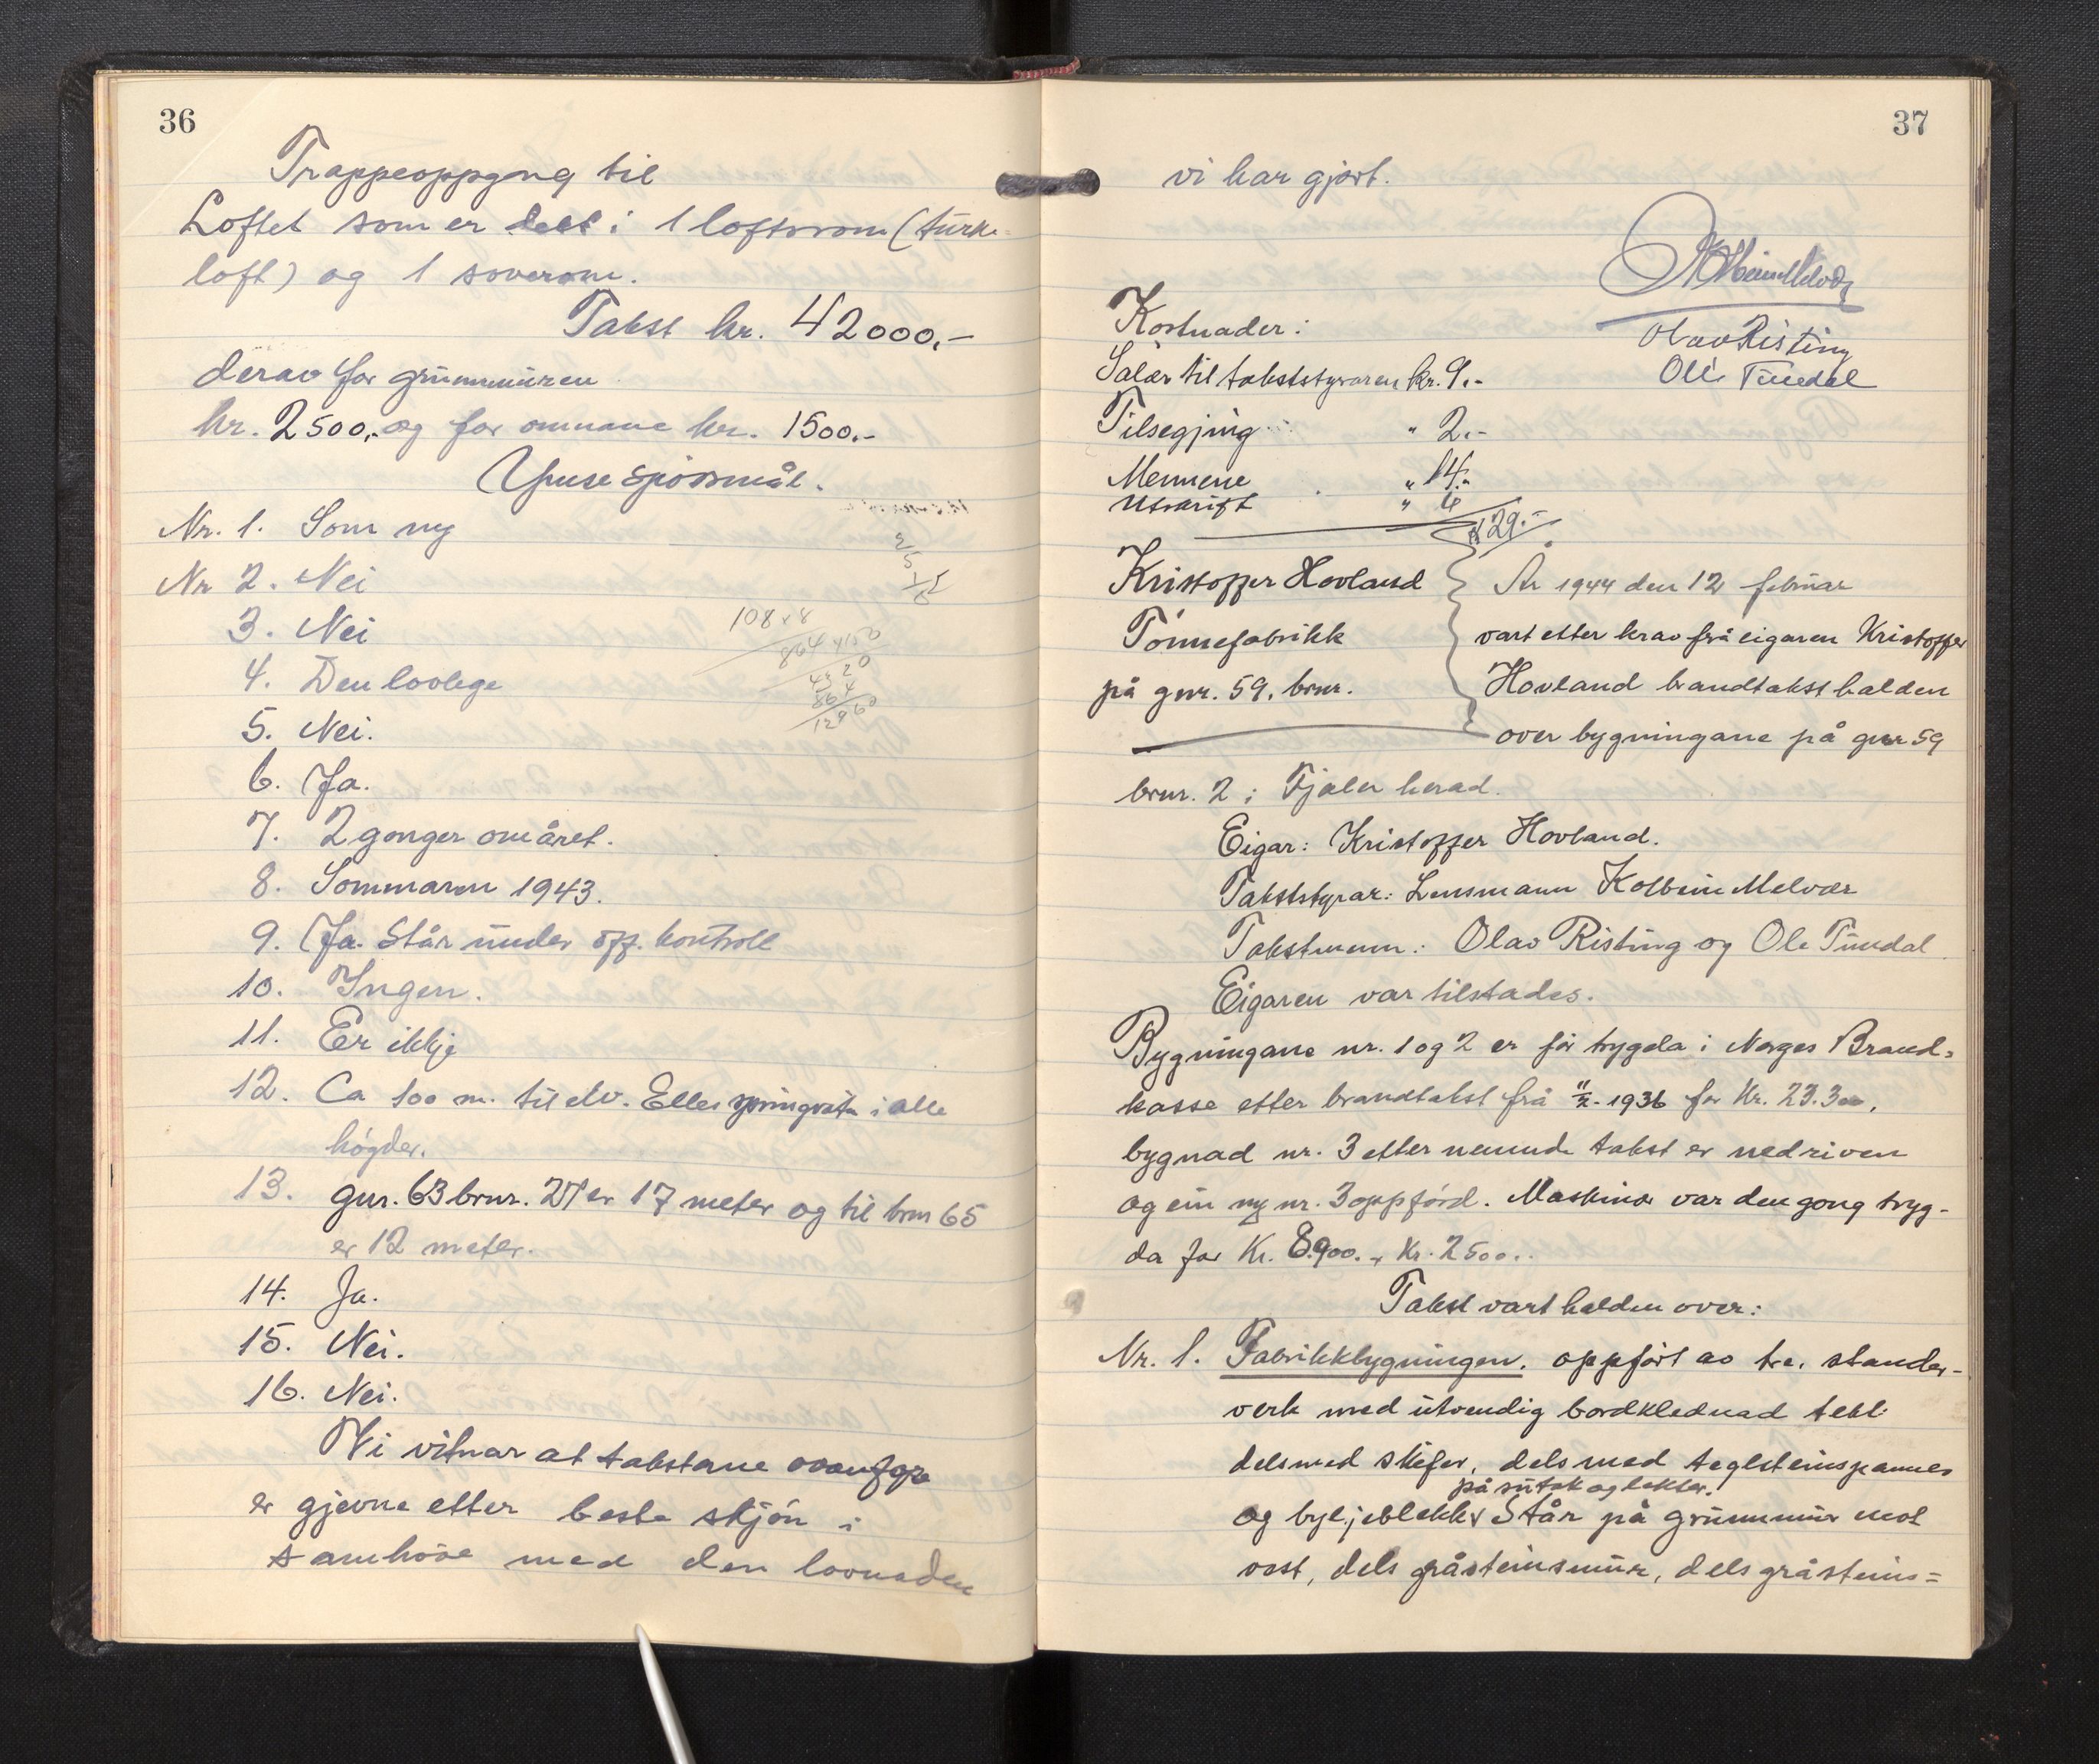 36
Trappeoppgang til
Loftet som er delt i 1 loftsrom (turke-
loft) og 1 soverom.
Takst kr. 42000,-
derav for grunnmuren
kr. 2500,- og for omnane kr. 1500.-
Ymse spörsmål.
Nr. 1. Som ny
Nr 2. Nei
3. Nei
4. Den lovlege
5. Nei.
6. Ja.
7. 2 gonger om året.
8. Sommaren 1943.
9. Ja. Står under off. kontroll
10. Ingen.
11. Er ikkje
12. Ca 100 m. til elv. Elles springvatn i alle
högder.
13. gnr. 63 brnr. 27 er 17 meter og til brnr 65
er 12 meter.
14. Ja.
15. Nei.
16. Nei.
Vi vitnar at takstane ovanfor
er gjevne etter beste skjön i
samhöve med den lovnaden
108 x 8
864 x 150
4320
864
12960
37
vi har gjort.
Kolbein Melvær
Olav Risting
Ole Tundal
Kostnader:
Salær til takststyraren kr. 9.-
Tilsegjing " 2.-
Mennene " 14.-
Utskrift " 4
kr 29.-
Kristoffer Hovland
Tönnefabrikk
på gnr. 59, brnr.
År 1944 den 12 februar
vart etter krav frå eigaren Kristoffer
Hovland brandtakst halden
over bygningane på gnr 59
brnr. 2 i Fjaler herad.
Eigar: Kristoffer Hovland.
Takststyrar: Lensmann Kolbein Melvær
Takstmenn: Olav Risting og Ole Tundal
Eigaren var tilstades.
Bygningane nr. 1 og 2 er för trygda i Norges Brand=
kasse etter brandtakst frå 11/2- 1936 for Kr. 23.300,
bygnad nr. 3 etter nemnde takst er nedriven
og ein ny nr. 3 oppförd. Maskiner var den gong tryg-
da for Kr. 8.900. Kr. 2500..
Takst vart halden over:
Nr. 1. Fabrikkbygningen, oppfört av tre, stander-
verk med utvendig bordklednad tekt
dels med skifer, dels med teglsteinspanner
på sutak og lekter.
og bylgjeblekk. Står på grunnmur mot
vest, dels gråsteinsmur, dels gråsteins=